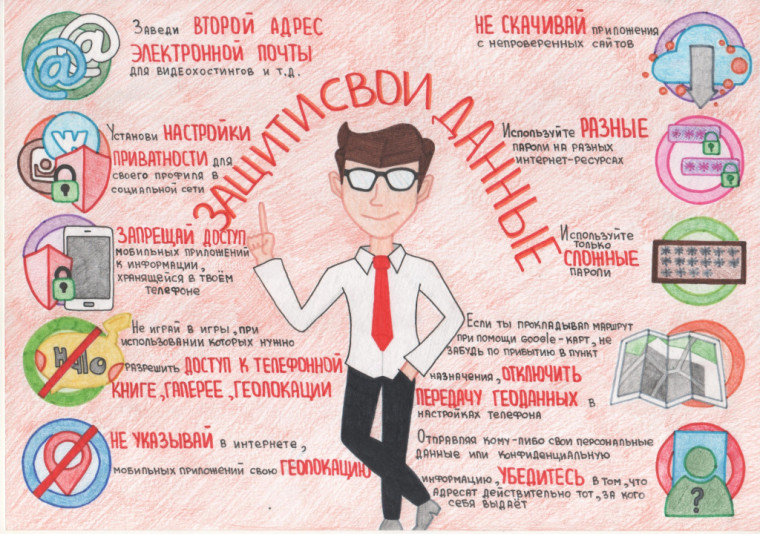 ЗАЩИТИ СВОИ ДАННЫЕ
Заведи ВТОРОЙ АДРЕС
ЭЛЕКТРОННОЙ ПОЧТЫ
ДЛЯ ВИДЕОХОСТИНГОВ И Т.Д.
Установи НАСТРОЙКИ
ПРИВАТНОСТИ для
своего профиля в
социальной сети
ЗАПРЕЩАЙ ДОСТУП
мобильных приложений
к информации,
хранящейся в твоём
телефоне
Не играй в игры, при
использовании которых нужно
разрешить ДОСТУП К ТЕЛЕФОННОЙ
КНИГЕ, ГАЛЕРЕЕ, ГЕОЛОКАЦИИ
НЕ УКАЗЫВАЙ в интернете,
мобильных приложений свою ГЕОЛОКАЦИЮ
НЕ СКАЧИВАЙ приложения
с непроверенных сайтов
Используйте РАЗНЫЕ
пароли на разных
интернет-ресурсах
Используйте
только
СЛОЖНЫЕ
пароли
Если ты прокладывал маршрут
при помощи Google-карт, не
забудь по прибытию в пункт
назначения, ОТКЛЮЧИТЬ
ПЕРЕДАЧУ ГЕОДАННЫХ в
настройках телефона
Отправляя кому-либо свои персональные
данные или конфиденциальную
информацию, УБЕДИТЕСЬ в том, что
адресат действительно тот, за кого
себя выдаёт
@
@
?